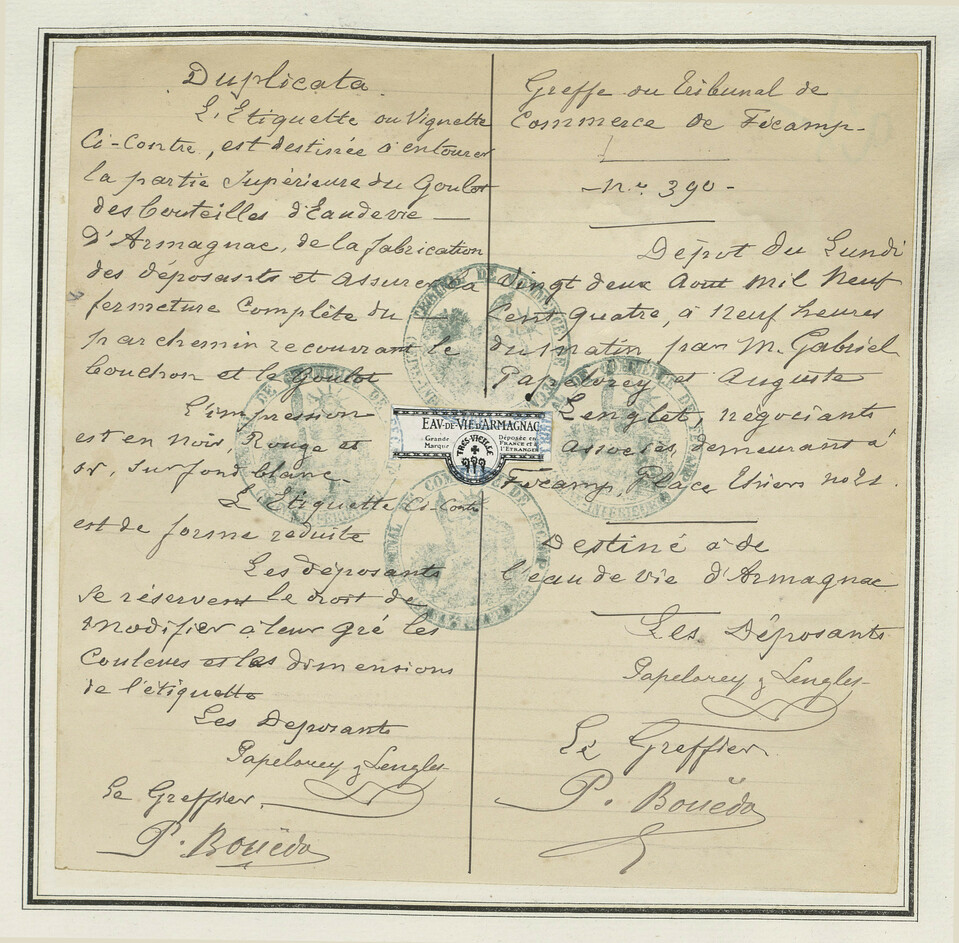 Duplicata.
L'Etiquette ou Vignette
Ci-Contre, est destinée à entourer
la partie Supérieure du Goulot
des bouteilles d'Eau de vie —
D'Armagnac, de la fabrication
des déposants et assurer la
fermeture Complète du —
parchemin recouvrant le
bouchon et le Goulot
L'impression
est en Noir, Rouge et
or, sur fond blanc.
L'Etiquette Ci-Contre
est de forme réduite
Les déposants
se réservent le droit de
modifier à leur gré les
Couleurs et les dimensions
de l'étiquette
Les Deposants
Papelorey & Lenglet
Le Greffier,
P. Bouëdo
EAV-DE-VIE D'ARMAGNAC
Grande Marque
TRÈS VIEILLE
Déposée en FRANCE et à l'ÉTRANGER
Greffe du Tribunal de
Commerce de Fécamp-
- No. 390 -
Dépot du Lundi
Vingt deux Aout mil Neuf
Cent quatre, à Neuf heures
du matin, par M. Gabriel
Papelorey et Auguste
Lenglet, négociants
associés, demeurant à
Fécamp, Place Thiers no 21.
Destiné à de
l'eau de vie d'Armagnac
Les Déposants
Papelorey & Lenglet
Le Greffier
P. Bouëdo